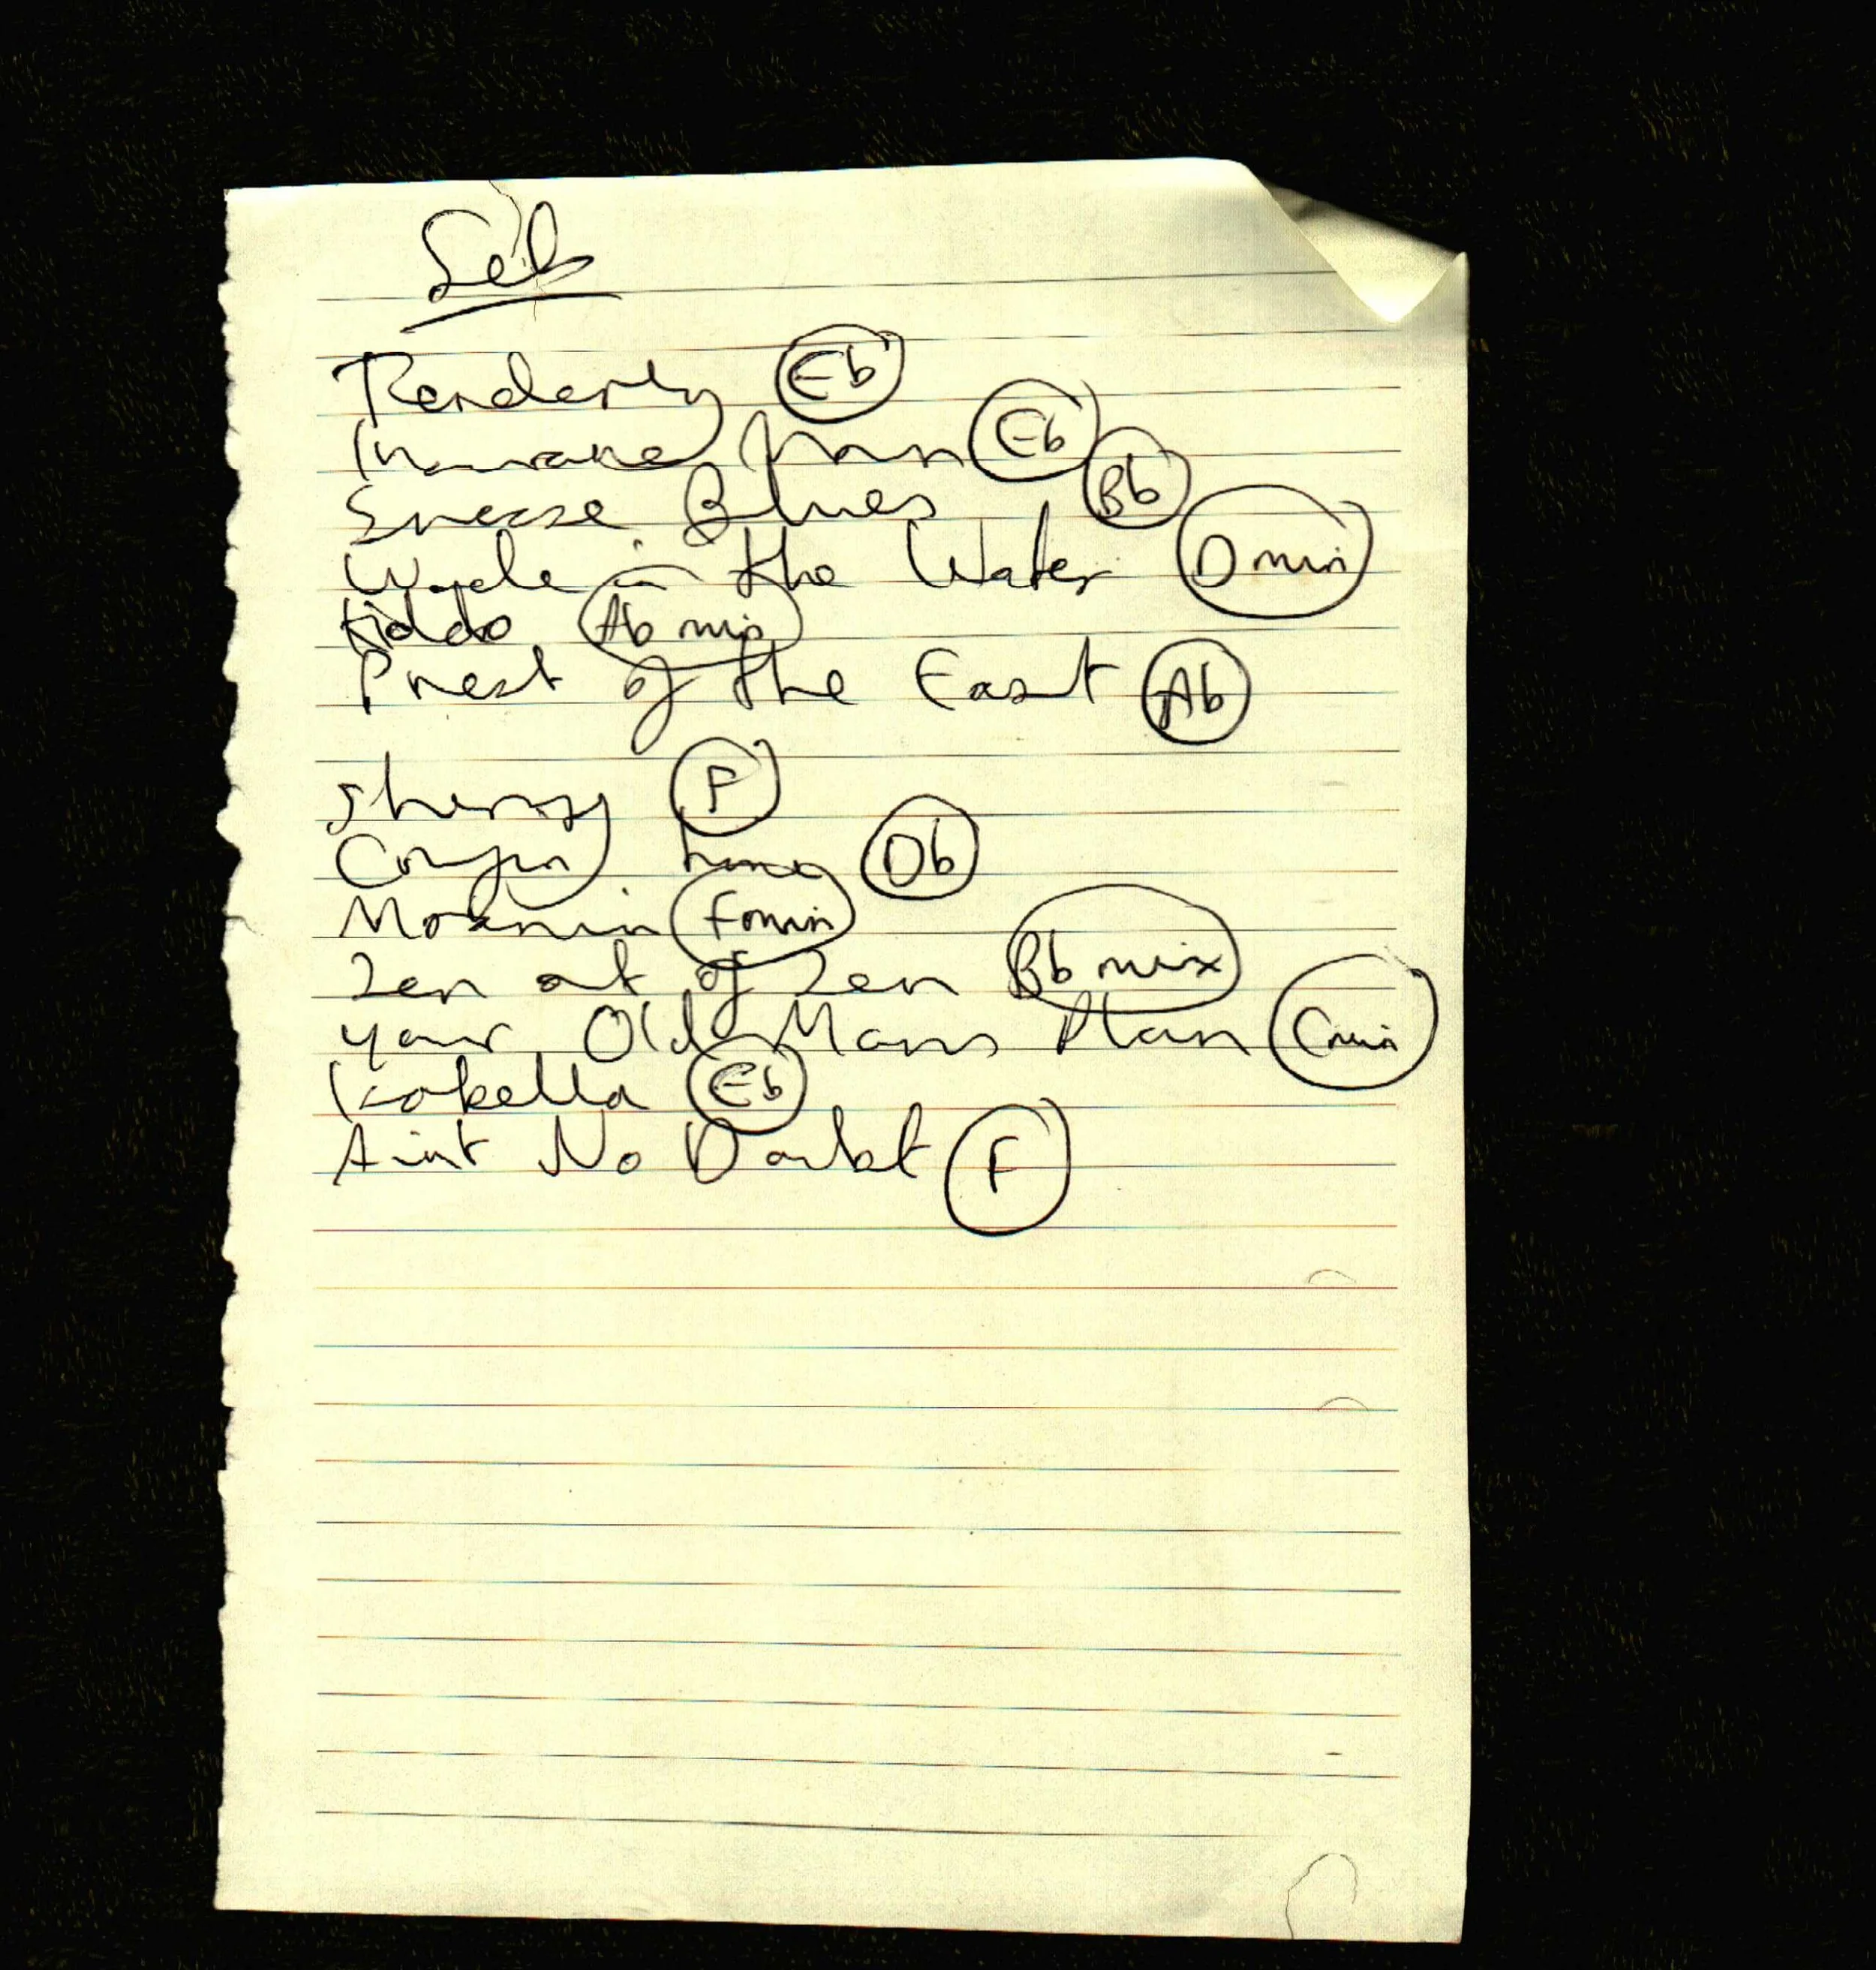 Tenderly Eb
Insurance Man Eb
Sneeze Blues Bb
Wade in the Water D min
Kiddo Ab mix
Priest of the East Ab
Sherry F
Comin home Db
Moanin F min
Zen out of Zen Bb mix
Your Old Mans Plan C min
Isobella Eb
Aint No Doubt F